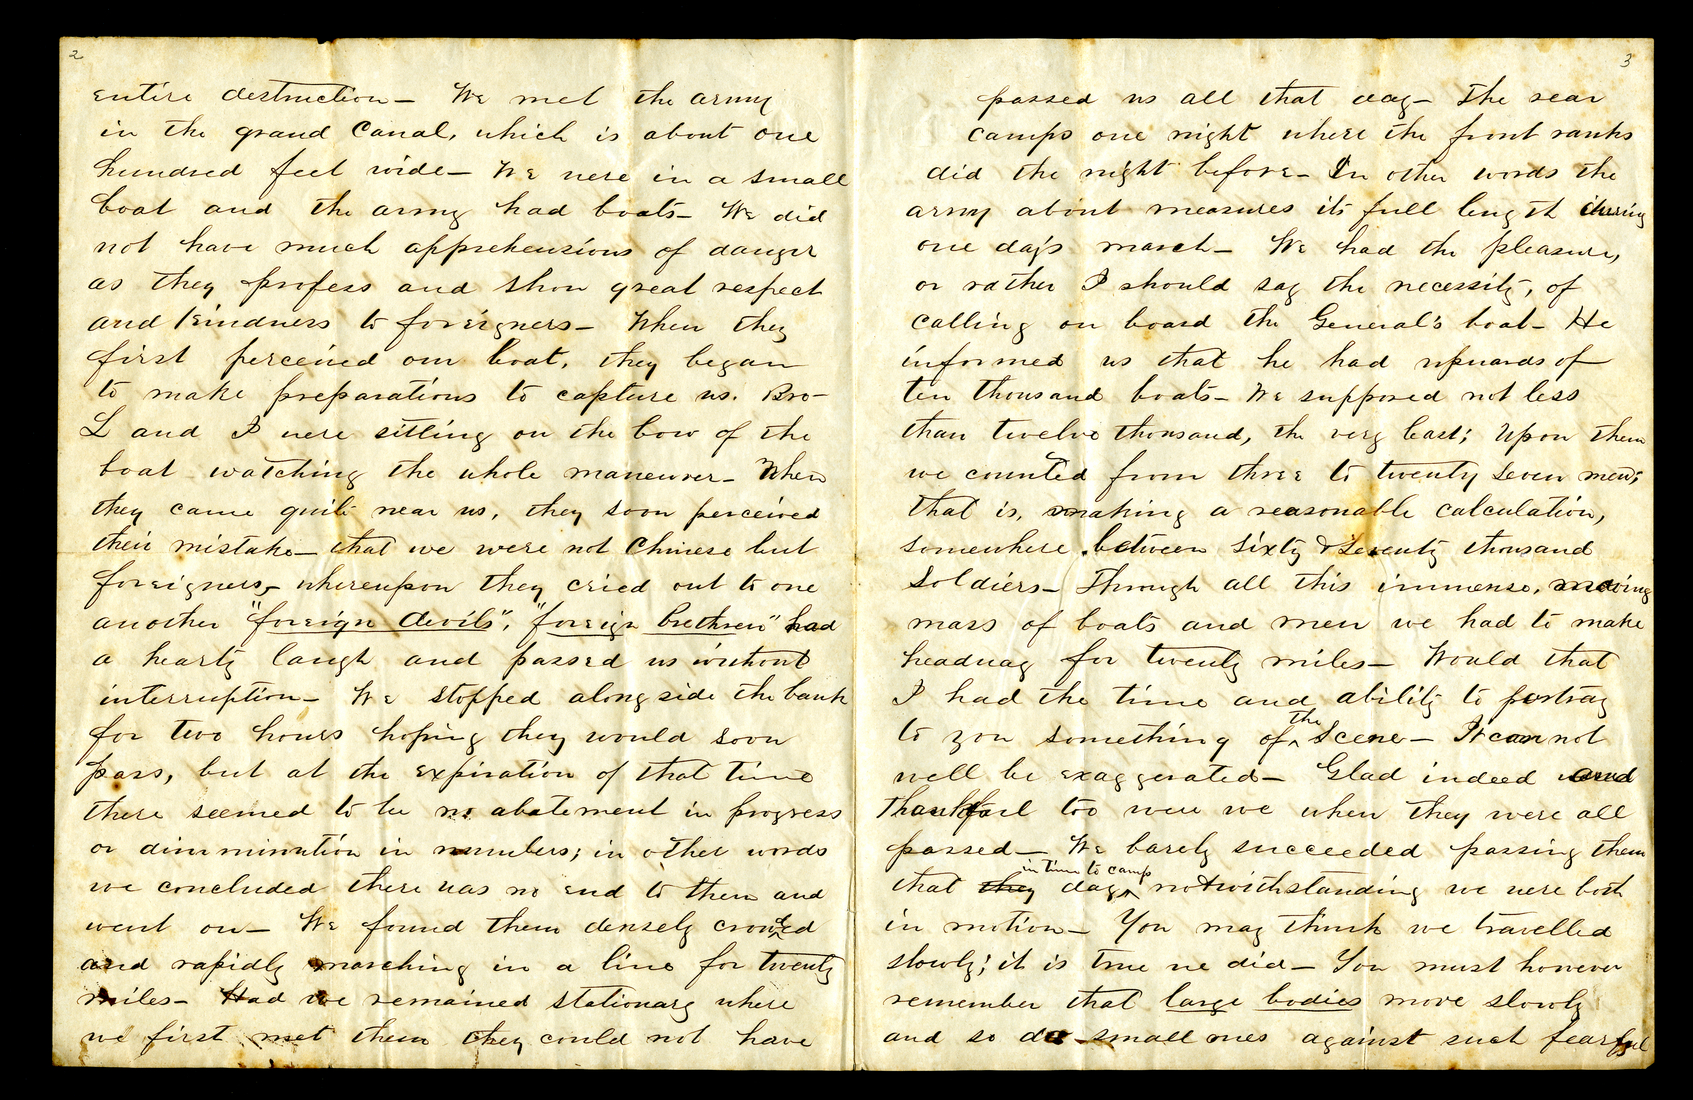 2
entire destruction — We met the army
in the grand Canal, which is about one
hundred feet wide — We were in a small
boat and the army had boats — We did
not have much apprehensions of danger
as they profess and show great respect
and kindness to foreigners — When they
first perceived our boat, they began
to make preparations to capture us. Bro —
L and I were sitting on the bow of the
boat watching the whole maneuver — When
they came quite near us, they soon perceived
their mistake — that we were not Chinese but
foreigners, whereupon they cried out to one
another "foreign devils", "foreign brethren" had
a hearty laugh and passed us without
interruption — We stopped along side the bank
for two hours hoping they would soon
pass, but at the expiration of that time
there seemed to be no abatement in progress
or dimminution in numbers; in other words
we concluded there was no end to them and
went on — We found them densely crowded
and rapidly marching in a line for twenty
miles — Had we remained stationary where
we first met them they could not have
3
passed us all that day — The rear
camps one night where the front ranks
did the night before — In other words the
army about measures its full length during
one day's march — We had the pleasure,
or rather I should say the necessity, of
calling on board the General's boat — He
informed us that he had upwards of
ten thousand boats — We supposed not less
than twelve thousand, the very least; Upon them
we counted from three to twenty seven men;
that is, making a reasonable calculation,
somewhere between sixty & seventy thousand
soldiers — Through all this immense, moving
mass of boats and men we had to make
headway for twenty miles — Would that
I had the time and ability to portray
to you something of the Scene — It can not
well be exaggerated — Glad indeed and
thankful too were we when they were all
passed — We barely succeeded passing them
that they day in time to camp notwithstanding we were both
in motion — You may think we travelled
slowly; it is true we did — You must however
remember that large bodies move slowly
and so do small ones against such fearful